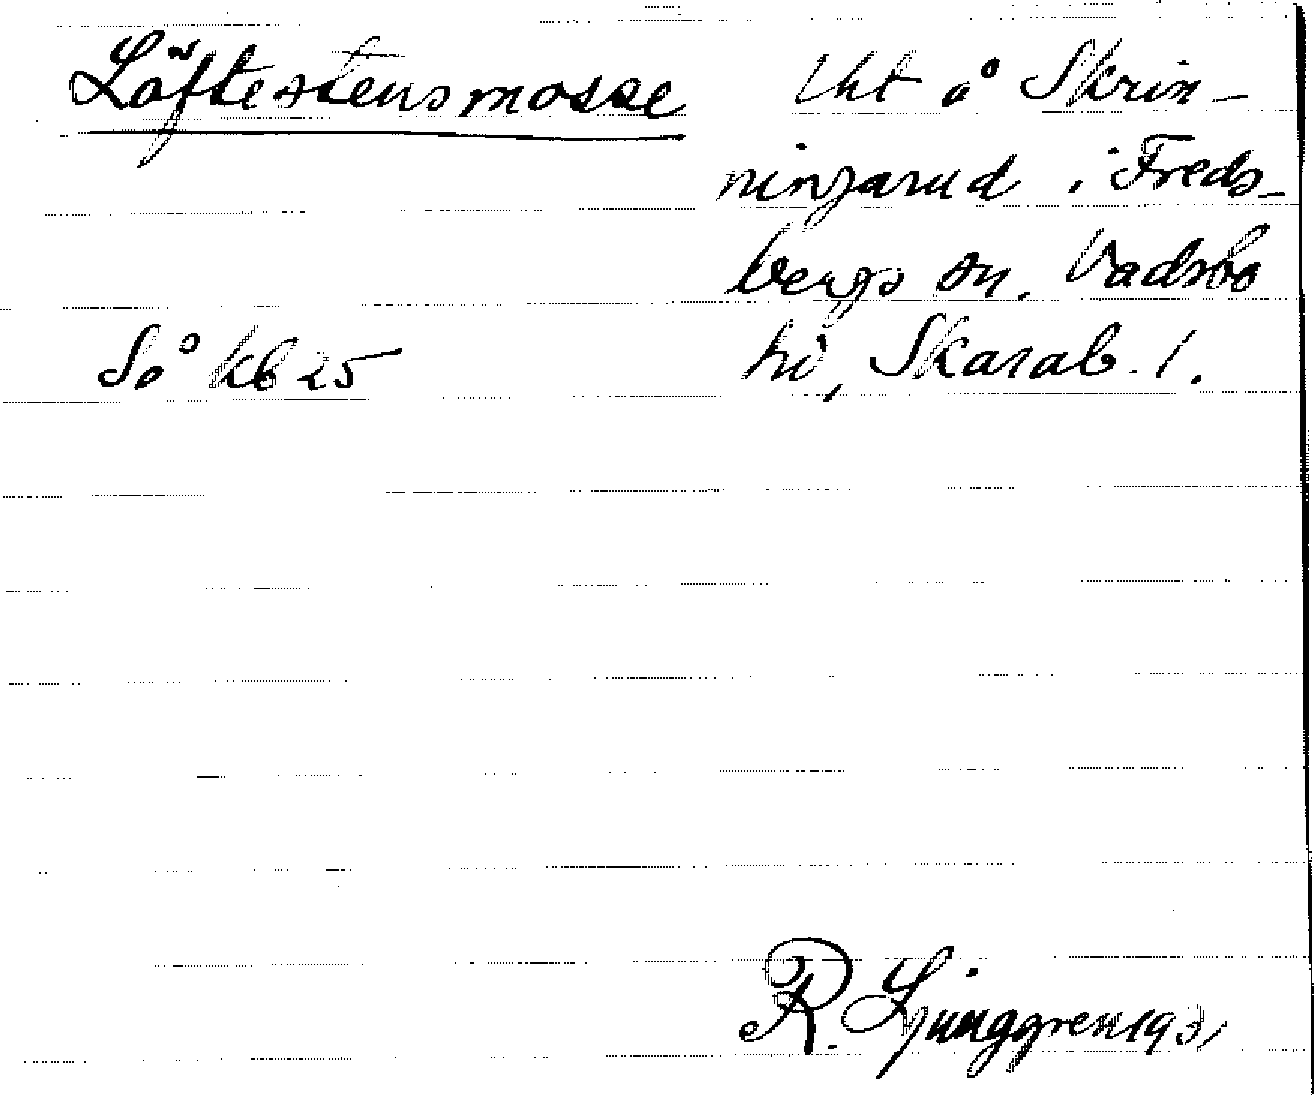 Löftestensmosse
Uht å Skrin-
ningarud i Freds-
bergs sn, Vadsbo
hd, Skarab. l.
Så kb 25
R. Ljunggren 1931